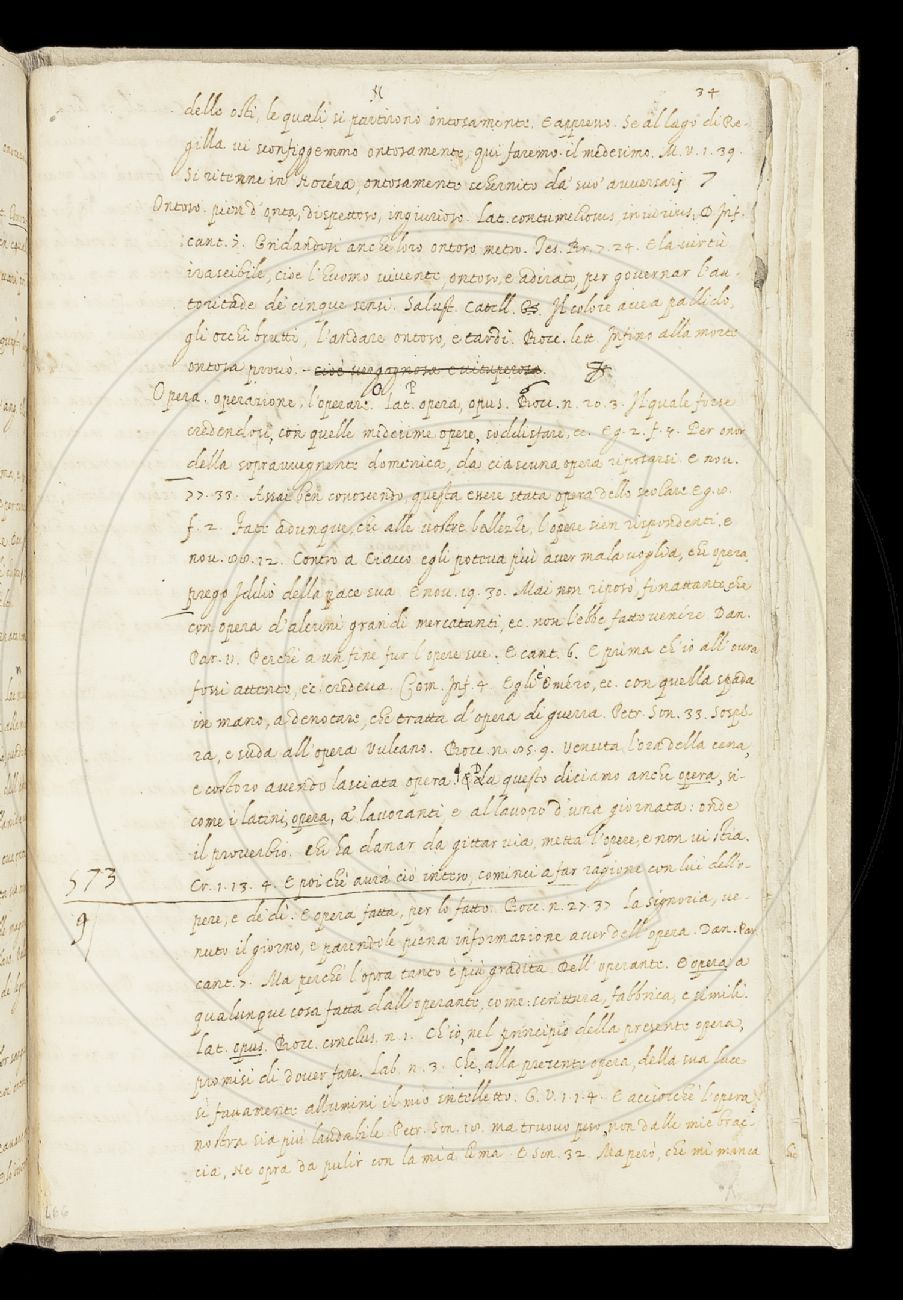 N 34
dello osti, le quali si partirono ontosamente. E appresso. Se al lago di Re-
gilla vi sconfiggemmo ontosamente, qui faremo il medesimo. M. V. 1. 39.
Si ritenne in Nocéra, ontosamente schernito da' suo' avversarj 7
Ontoso. pien d'onta, dispettoso, ingiurioso. Lat. contumeliosus, iniurius. D. Inf.
cant. 7. Gridandosi anche loro ontoso metro. Tes. Br. 7. 24. E la virtù
irascibile, cioè l'huomo vivente, ontoso, e adirato, per governar l'au-
toritade de' cinque sensi. Salust. Catell. Il colore avea pallido,
gli occhi brutti, l'andare ontoso, e tardi. Bocc. lett. Infino alla morte
ontosa provò. cioè vergognosa e vituperosa.
O P
Opera. operazione, l'operare. Lat. opera, opus. Bocc. n. 20. 3. Il quale forse
credendosi, con quelle medesime opere, soddisfare, ec. E g. 2. f. 4. Per onor
della sopravvegnente domenica, da ciascuna opera riposarsi. E nov.
77. 33. Assai ben conoscendo, questa essere stata opera dello scolare. E g. 10.
f. 2. Fate adunque, che alle vostre bellezze, l'opere sien rispondenti. e
nov. 88. 12. Contro a Ciacco egli poteva più aver mala voglia, che opera.
prego Iddio della pace sua. E nov. 19. 30. Mai non riposò, finattantoche
con opera d'alcuni grandi mercatanti, ec. non l'ebbe fatto venire. Dan.
Par. 11. Perchè a un fine fur l'opere sue. E cant. 6. E prima ch'io all'ovra
fossi attento, ec. credeva. Com. Inf. 4. Egli è Oméro, ec. con quella spada
in mano, a denotare, che tratta d'opera di guerra. Petr. Son. 33. Sospi-
ra, e suda all'opera Vulcano. Bocc. n. 85. 9. Venuta l'ora della cena,
e costoro avendo lasciata opera. Da questo diciamo anche opera, si-
come i latini, opera, a' lavoranti e al lavoro d'una giornata: onde
il proverbio. Chi ha danar da gittar via, metta l'opere, e non vi stia.
573
9
Cr. 1. 13. 4. E poi chè avrà ciò intero, cominci a far ragione con lui dello-
pere, e de' dì. E opera fatta, per lo fatto. Bocc. n. 27. 37 La Signoria, ve-
nuto il giorno, e parendole piena informazione aver dell'opera. Dan. Par.
cant. 7. Ma perchè l'opra tanto è più gradita Dell'operante. E opera a
qualunque cosa fatta dall'operante, come: scrittura, fabbrica, e simili.
Lat. opus. Bocc. conclus. n. 1. Ch'io, nel principio della presente opera,
promisi di dover fare. Lab. n. 3. Che, alla presente opera, della sua luce
sì favamente allumini il mio intelletto. G. V. 1. 1. 4. E acciocchè l'opera
nostra sia più laudabile. Petr. Son. 18. ma truovo peso, non dalle mie brac-
cia, Ne opra da pulir con la mia lima. E Son. 32. Ma però, che mi manca
166